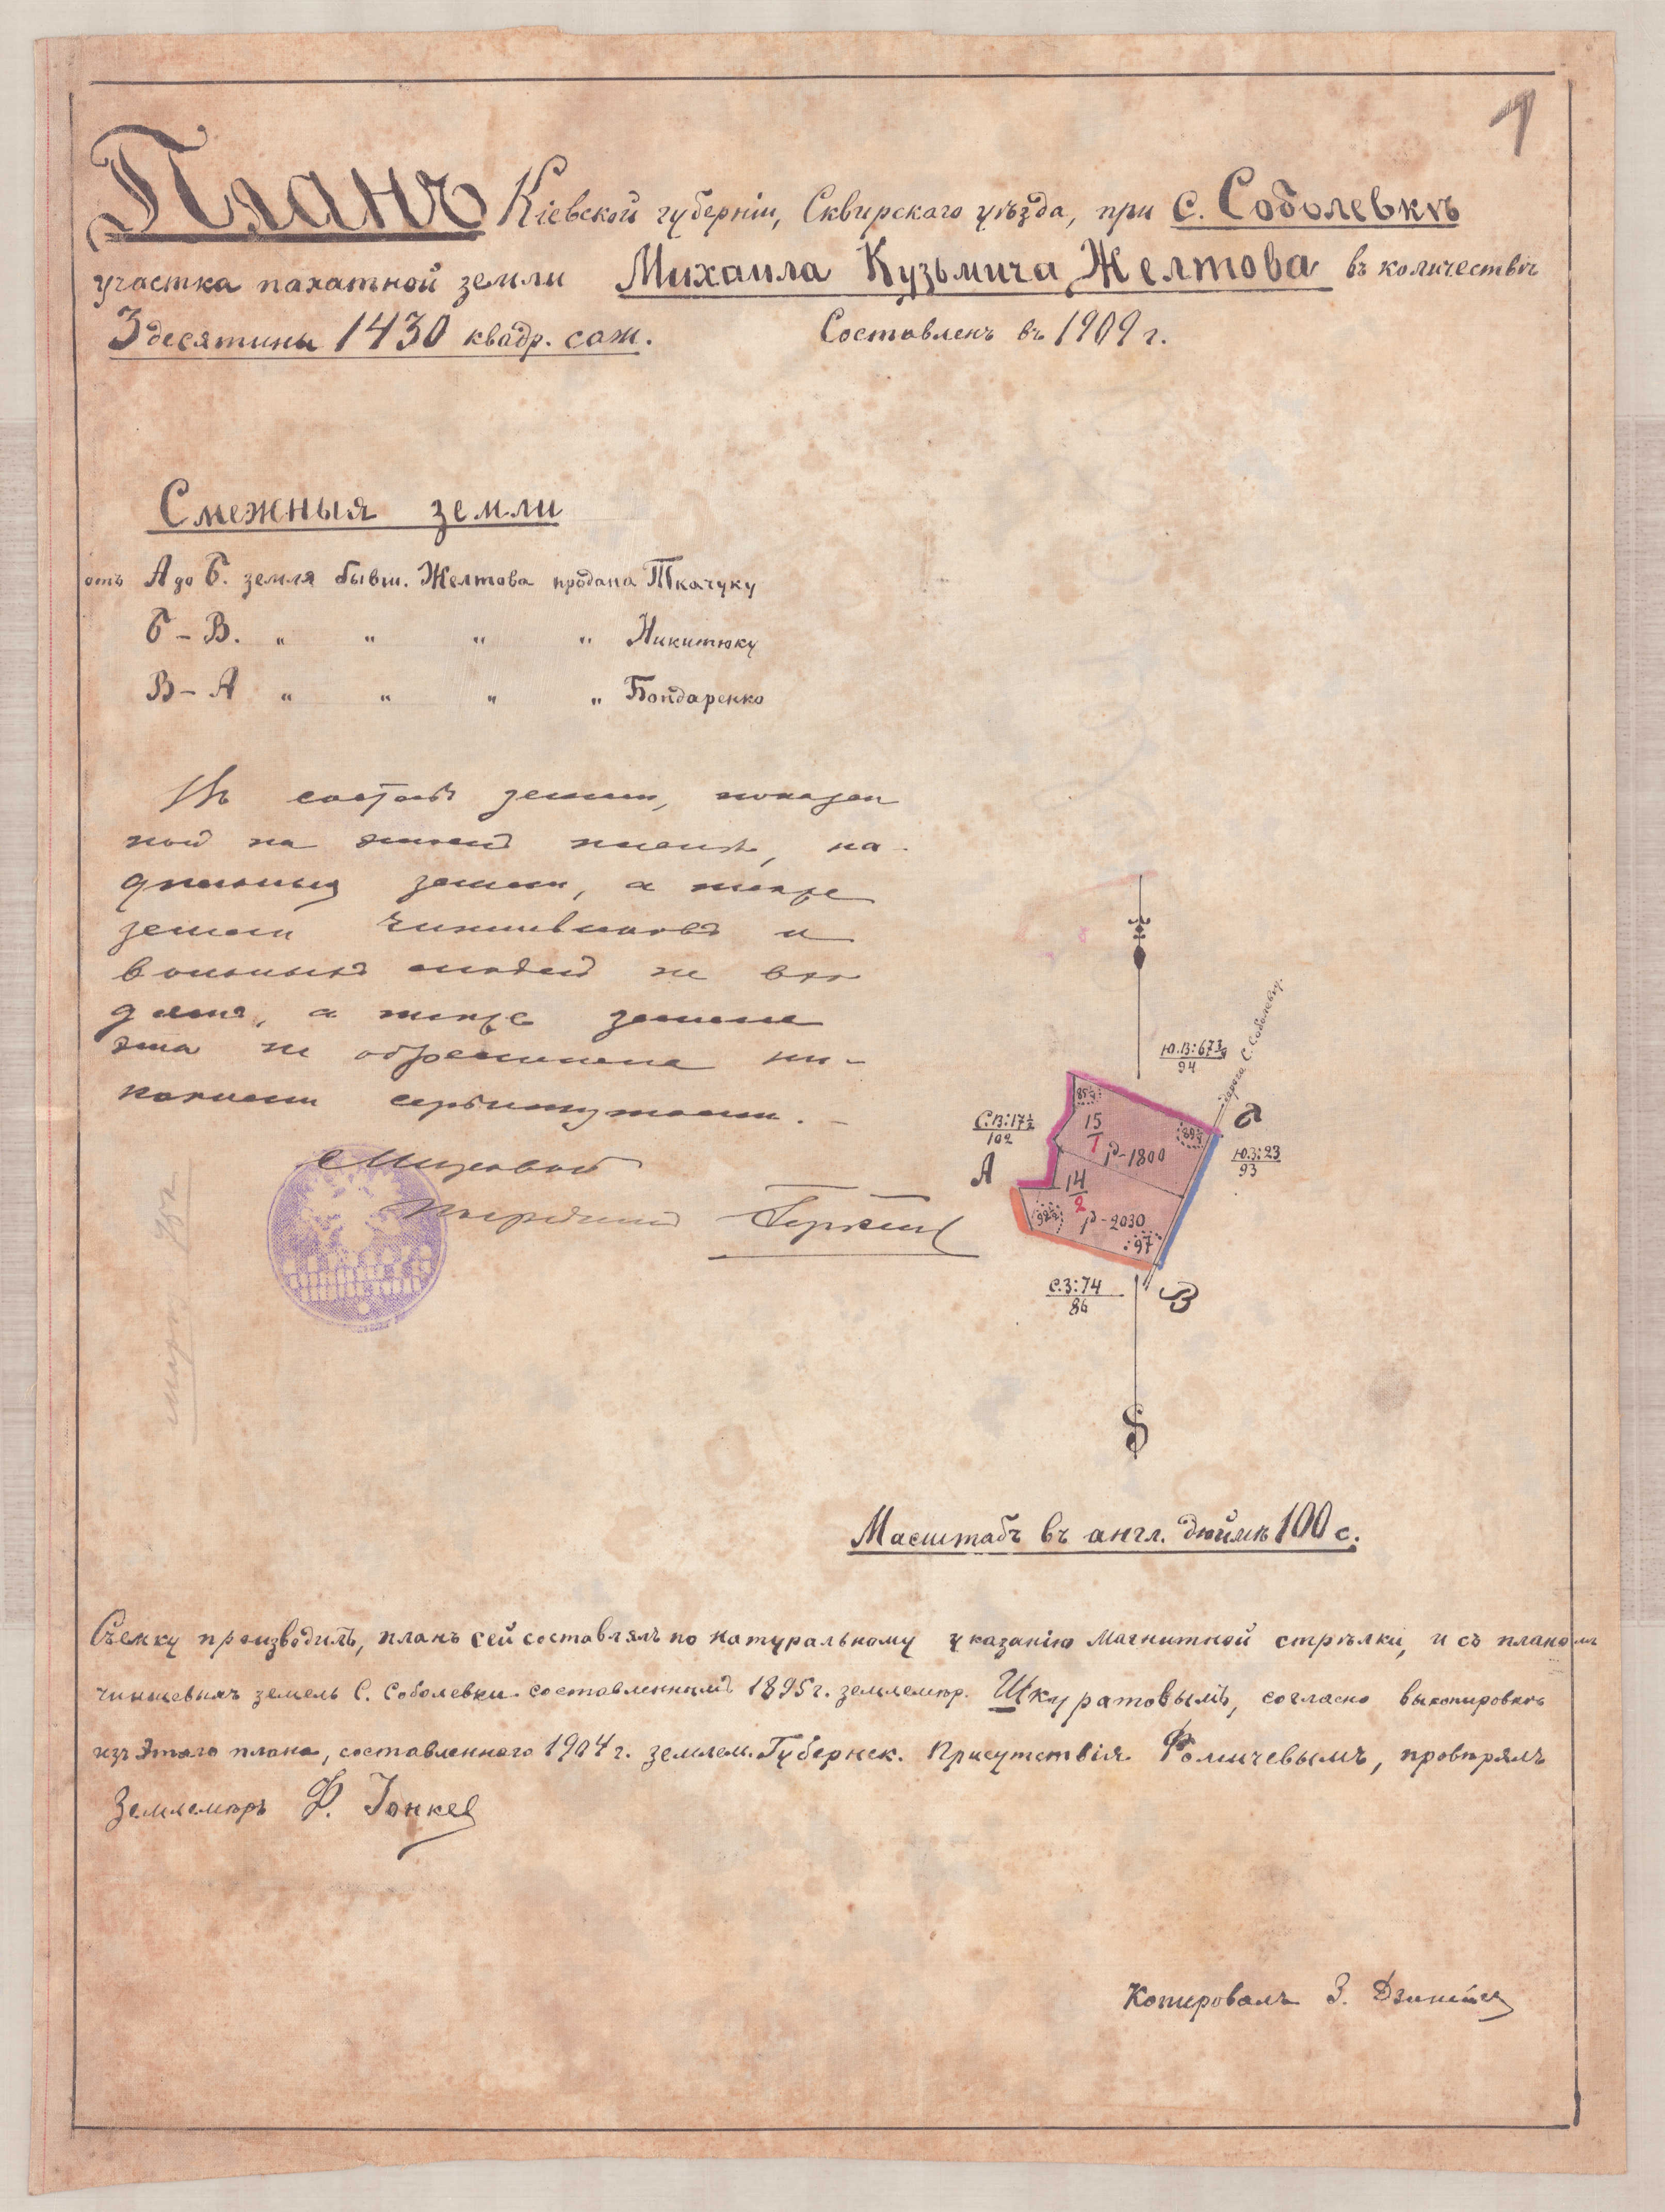 1
Планъ Кіевской губерніи, Сквирскаго уѣзда, при с. Соболевкѣ
участка пахатной земли Михаила Кузьмича Желтова въ количествѣ
3 десятины 1430 квадр. саж. Составленъ въ 1909 г.
Смежныя земли
отъ А до Б. земля бывш. Желтова продана Ткачуку
Б – В. " " " " Никитюку
В – А " " " " Бондаренко
Въ составъ земли, показан
ной на этомъ планѣ, на-
дѣльныя земли, а также
земли чиншевиковъ и
вольныхъ людей не вхо
дятъ, а также земля
эта не обременена ни-
какими сервитутами. –
Мировой
Посредникъ
дорога с. Соболевку
Ю.В:67¾
94
С.В:17½
102
А
Б
Ю.З:23
93
85½
15
1
89½
1д-1800
14
2
92½
1д-2030
97
С.З:74
86
В
S
Масштабъ въ англ. дюймѣ 100 с.
Съемку производилъ, планъ сей составлялъ по натуральному указанію магнитной стрѣлки, и съ планомъ
чиншевыхъ земель с. Соболевки составленнымъ 1895 г. землемѣр. Шкуратовымъ, согласно выкопировкѣ
изъ этого плана, составленного 1904 г. землем. Губернск. Присутствія Фомичевымъ, провѣрялъ
Землемѣръ Ф. Іонкев
Копировалъ З.